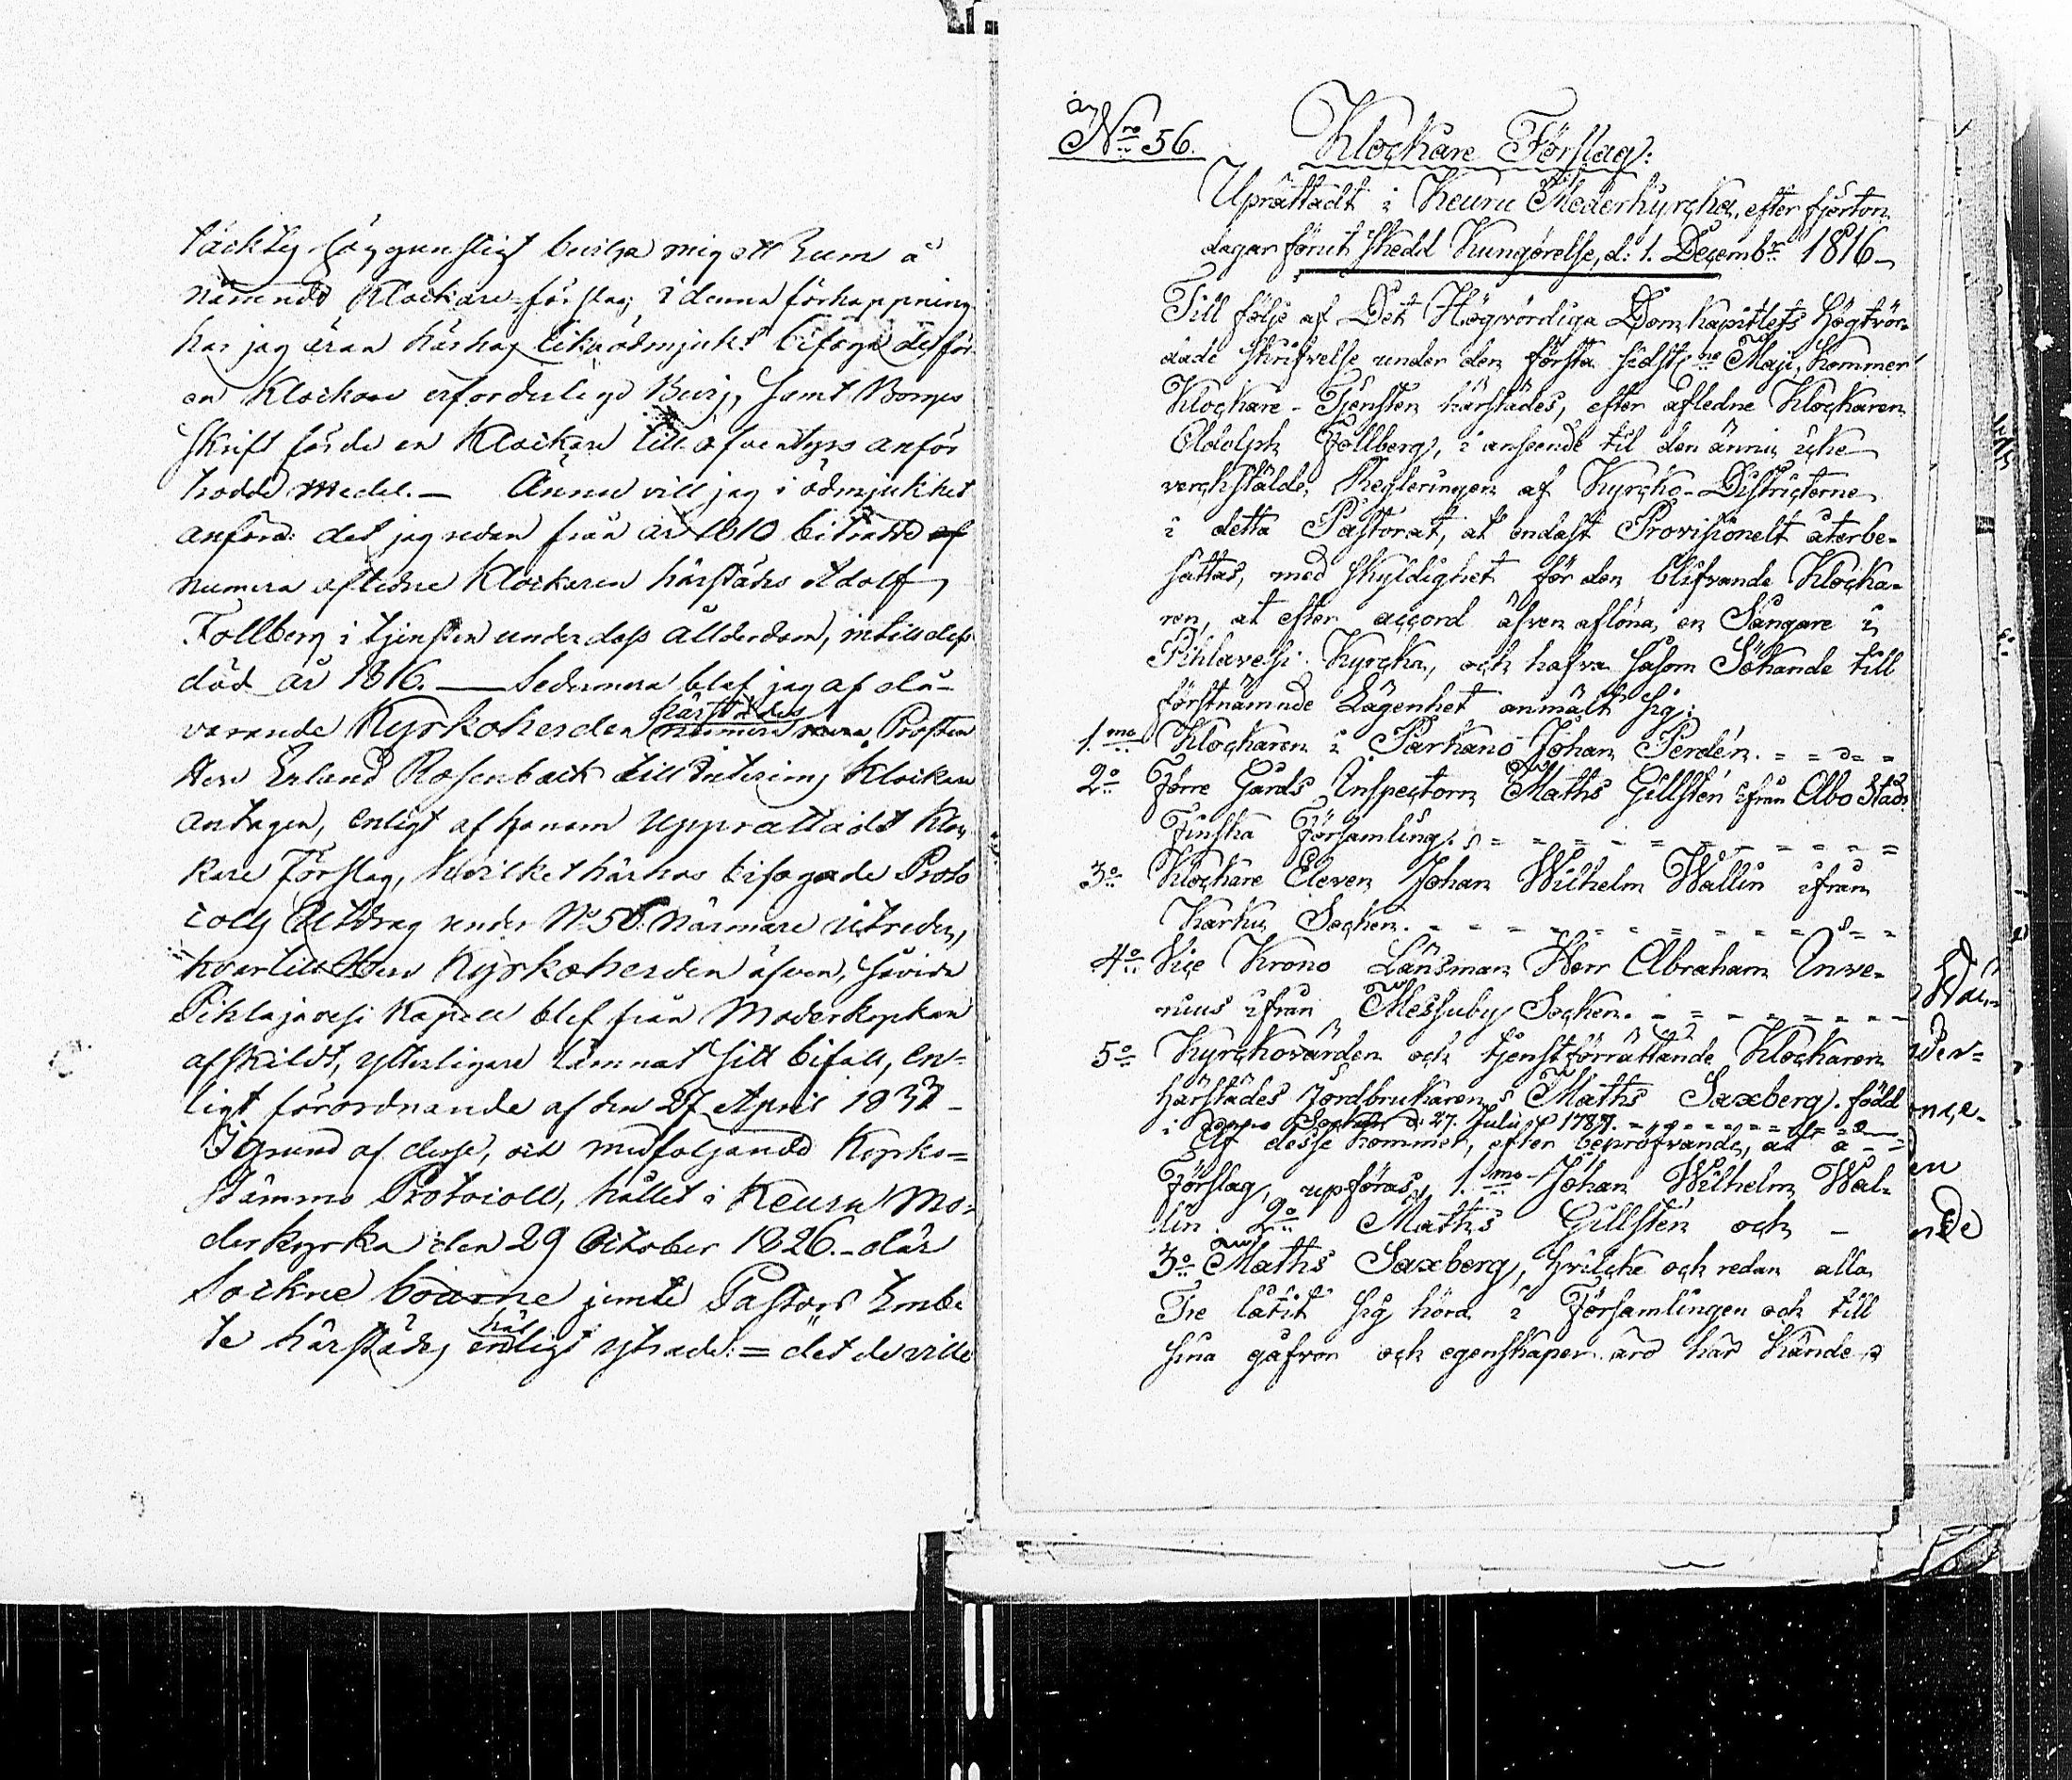 täckes höggunstigt bevilja mig ett rum å
nämnde Klockare-förslag; i denna förhoppning
har jag äran härhos lika ödmjukt bifoga de för
en Klockare erforderlige Bevis, samt Borges
skrift för de en Klockare till äfventyrs anför
trodde medel. — Ännu vill jag i ödmjukhet
anföra: det jag redan från år 1810 biträdde af
numera afledne Klockaren härstädes Adolf
Follberg i tjensten under dess ålderdom, intill dess
död år 1816. — Sedermera blef jag af då-
varande Kyrkoherden härstädes numera Prosten
Herr Erland Rosenback till Interims Klockare
antagen, enligt af honom upprättadt Kloc
kare Förslag, hvilket härhos bifogade Proto
colls Utdrag under No 56. närmare utreder,
hvartill Herr Kyrkoherden äfven, såvida
Pihlajavesi Kapell blef från Moderkyrkan
afskildt, ytterligare lämnat sitt bifall, en-
ligt förordnande af den 27 April 1832 –
I grund af desse, och medföljande Kyrko=
stämmo Protocoll, hållet i Keuru Mo-
derkyrka den 29 October 1826. – där
Sockne boarne jemte Pastors Embe
te härstädes enhälligt yttrade: = det de ville
Nro 56. Klockare Förslag:
Uprättadt i Keuru Moderkyrcka, efter fjorton
dagar förut skedd Kungörelse, d: 1. Decembr 1816 –
Till följe af Det Högvördiga Domkapitlets högtvör-
dade skrifvelse under den första sidstl. Maji, kommer
Klockare-Tjensten härstädes, efter afledne Klockaren
Adolph Follberg, i anseende til den ännu icke
verckstälde Regleringen af Kyrcko-Districterne
i detta Pastorat, at endast Provisionelt återbe-
sättas, med skyldighet för den blifvande Klocka-
ren, at efter accord äfven aflöna en Sångare i
Pihlavesi Kyrcka, och hafva såsom Sökande till
förstnämnde Lägenhet anmält sig:
1.mo Klockaren i Parkano Johan Perdén. = = = =
2o Förre Gårds Inspectorn Maths Gillstén ifrån Åbo Stads
Finska Församling. = = = = = = = = = =
3o Klockare Eleven Johan Wilhelm Wallin ifrån
Karku Socken. = = = = = = = = = = =
4o Vice Krono Länsman Herr Abraham Inve-
nius ifrån Messuby Socken. = = = = = = =
5o Kyrckovärden och tjenstförrättande Klockaren
härstädes Jordbrukaren Maths Saxberg. född
i Socken d. 27. Julii 1787. = = = = = = =
Af desse kommer, efter bepröfvande, at å – =
Förslag, upföras, 1.mo Johan Wilhelm Wal-
lin. 2o Maths Gillstén och –
3o Maths Saxberg, hvilcke och redan alla
Tre låtit sig höra i Församlingen och till
sina gåfvor och egenskaper äro här kände